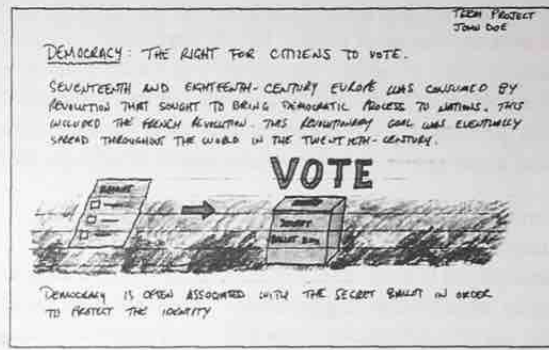 TERM PROJECT
JOHN DOE
DEMOCRACY: THE RIGHT FOR CITIZENS TO VOTE.
SEVENTEENTH AND EIGHTEENTH-CENTURY EUROPE WAS CONSUMED BY
REVOLUTION THAT SOUGHT TO BRING DEMOCRATIC PROCESS TO NATIONS. THIS
INCLUDED THE FRENCH REVOLUTION. THIS REVOLUTIONARY GOAL WAS EVENTUALLY
SPREAD THROUGHOUT THE WORLD IN THE TWENTIETH-CENTURY.
VOTE
BALLOT
SECRET
BALLOT BOX
DEMOCRACY IS OFTEN ASSOCIATED WITH THE SECRET BALLOT IN ORDER
TO PROTECT THE IDENTITY